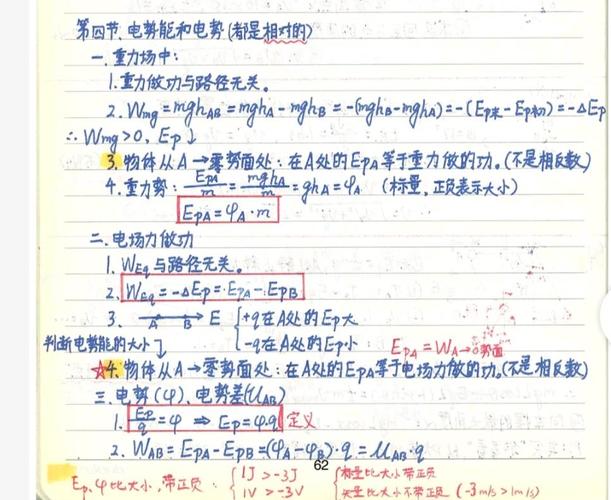 第四节、电势能和电势(都是相对的)
一、重力场中:
1.重力做功与路径无关。
2. Wmg=mghAB=mghA-mghB=-(mghB-mghA)=-(Ep末-Ep初)=-ΔEp
∴Wmg>0, Ep↓
3.物体从A→零势面处:在A处的EpA等于重力做的功。(不是相反数)
4.重力势: EpA/m=mghA/m=ghA=φA (标量,正负表示大小)
EpA=φA·m
二、电场力做功
1. WEq与路径无关。
2. WEq=-ΔEp=EpA-EpB
3. A B E {+q在A处的Ep大
-q在A处的Ep小
EpA=WA→0势面
判断电势能的大小
☆4.物体从A→零势面处:在A处的EpA等于电场力做的功。(不是相反数)
三、电势(φ)、电势差(UAB)
1. Ep/q=φ ⇒ Ep=φ·q 定义
2. WAB=EpA-EpB=(φA-φB)·q=UAB·q
62
Ep、φ比大小,带正负: {1J>-3J {标量比大小带正负
1V>-3V 矢量比大小不带正负 (-3m/s>1m/s)